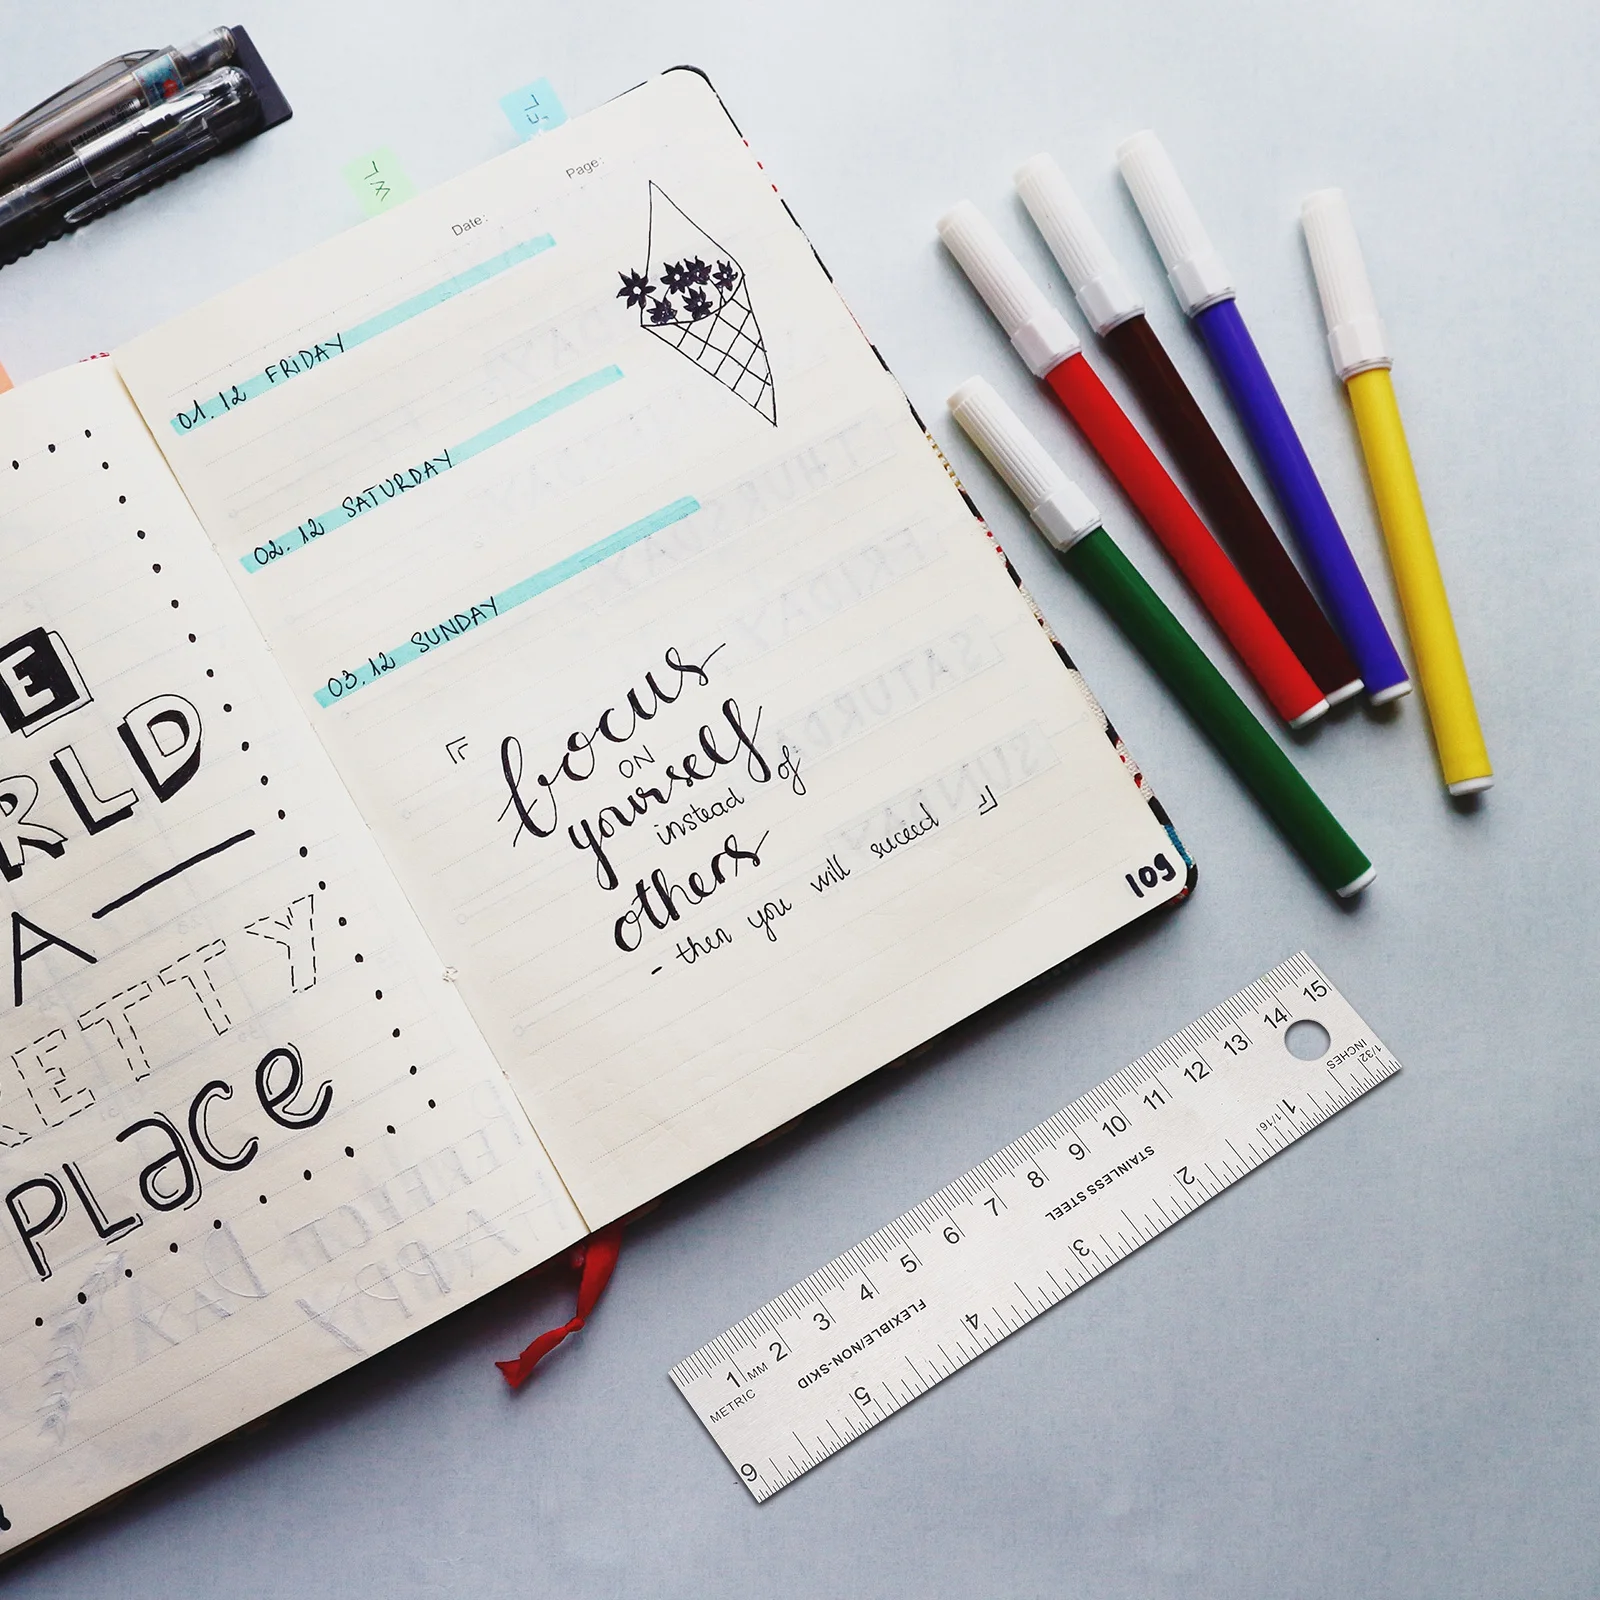 E
RLD
A
ETTY
PLace
Date:
Page:
01.12 FRIDAY
02.12 SATURDAY
03.12 SUNDAY
focus
ON
yourself
instead of
others
- then you will suceed
109
1 2 3 4 5 6 7 8 9 10 11 12 13 14 15
MM
METRIC
FLEXIBLE/NON-SKID
STAINLESS STEEL
INCHES
1/32
1/16
1 2 3 4 5 6